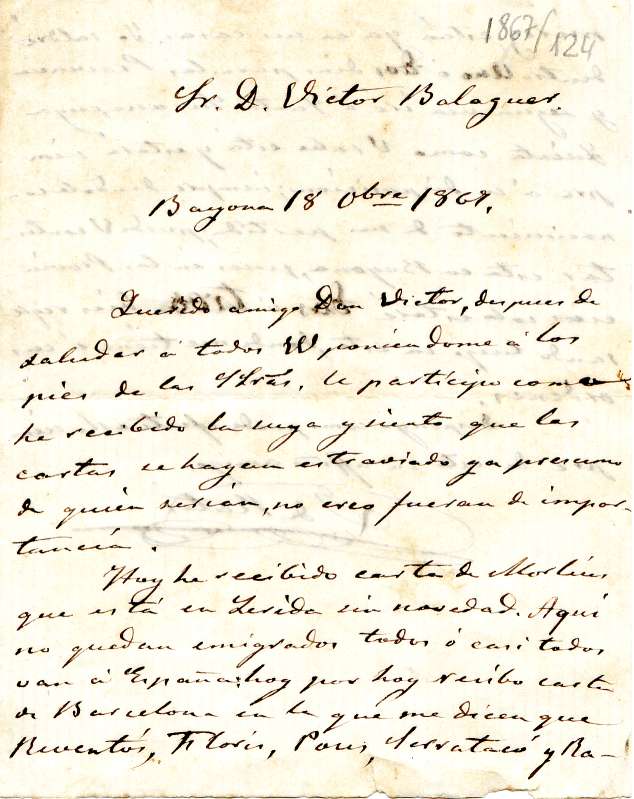 1867/124
Sr. D. Victor Balaguer.
Bayona 18 Obre 1867.
Querido amigo Don Victor, despues de
saludar á todos VV poniendome á los
pies de las Sras, le participo como
he recibido la suya y siento que las
cartas se hayan estraviado ya presumo
de quién serian, no creo fueran de impor-
tancia.
Hoy he recibido carta de Morlius
que está en Lerida sin novedad. Aqui
no quedan emigrados todos ó casi todos
van á España, hoy por hoy recibo carta
de Barcelona en la que me dicen que
Reventós, Floris, Pons, Serratacó y Ra-